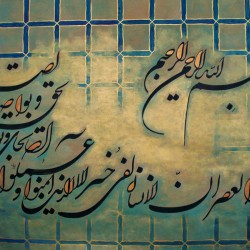 بسم الله الرحمن الرحیم
والعصر ان الانسان لفی خسر الا الذین آمنوا و عملوا
الصالحات و
بالحق و تواصوا